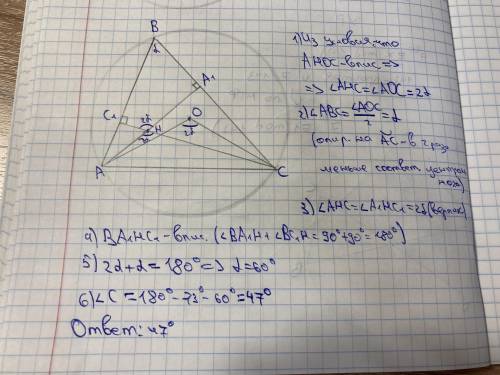 B
α
A₁
C₁
2α
H
O
2α
2α
A
C
1) Из условия, что
AHOC - впис =>
=> ∠AHC = ∠AOC = 2α
2) ∠ABC = ∠AOC/2 = α
(опир. на AC - в 2 раза
меньше соответ центральн
ного)
3) ∠AHC = ∠A₁HC₁ = 2α (вертик)
4) BA₁HC₁ - впис. (∠BA₁H + ∠BC₁H = 90° + 90° = 180°)
5) 2α + α = 180° => α = 60°
6) ∠C = 180° - 73° - 60° = 47°
Ответ: 47°